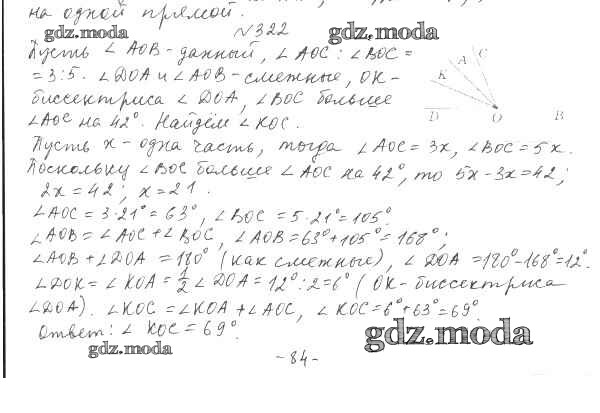 на одной прямой.
gdz.moda №322 gdz.moda
Пусть ∠AOB - данный, ∠AOC : ∠BOC =
= 3:5. ∠DOA и ∠AOB - смежные, OK -
биссектриса ∠DOA, ∠BOC больше
∠AOC на 42°. Найдём ∠KOC.
K A C
D O B
Пусть x - одна часть, тогда ∠AOC = 3x, ∠BOC = 5x.
Поскольку ∠BOC больше ∠AOC на 42°, то 5x-3x=42;
2x = 42; x = 21.
∠AOC = 3·21° = 63°, ∠BOC = 5·21° = 105°.
∠AOB = ∠AOC + ∠BOC, ∠AOB = 63° + 105° = 168°;
∠AOB + ∠DOA = 180° (как смежные), ∠DOA = 180°-168° = 12°.
∠DOK = ∠KOA = 1/2 ∠DOA = 12° : 2 = 6° (OK - биссектриса
∠DOA). ∠KOC = ∠KOA + ∠AOC, ∠KOC = 6° + 63° = 69°.
Ответ: ∠KOC = 69°.
gdz.moda gdz.moda
- 84 -